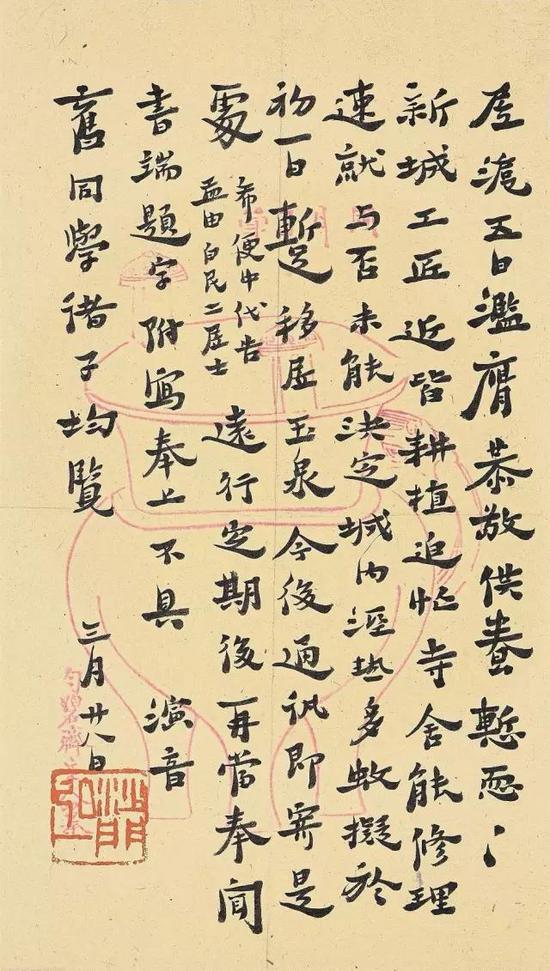 居滬五日濫膺恭敬供養慙恧〻
新城工匠近皆耕植迫忙寺舍能修理
速就与否未能決定城內溼热多蚊擬於
初一日蹔移居玉泉今後通訊即寄是
處希便中代告
益由白民二居士遠行定期後再當奉聞
書端題字附寫奉上不具 演音
舊同學諸子均覽 三月廿八日
沙門
弘一